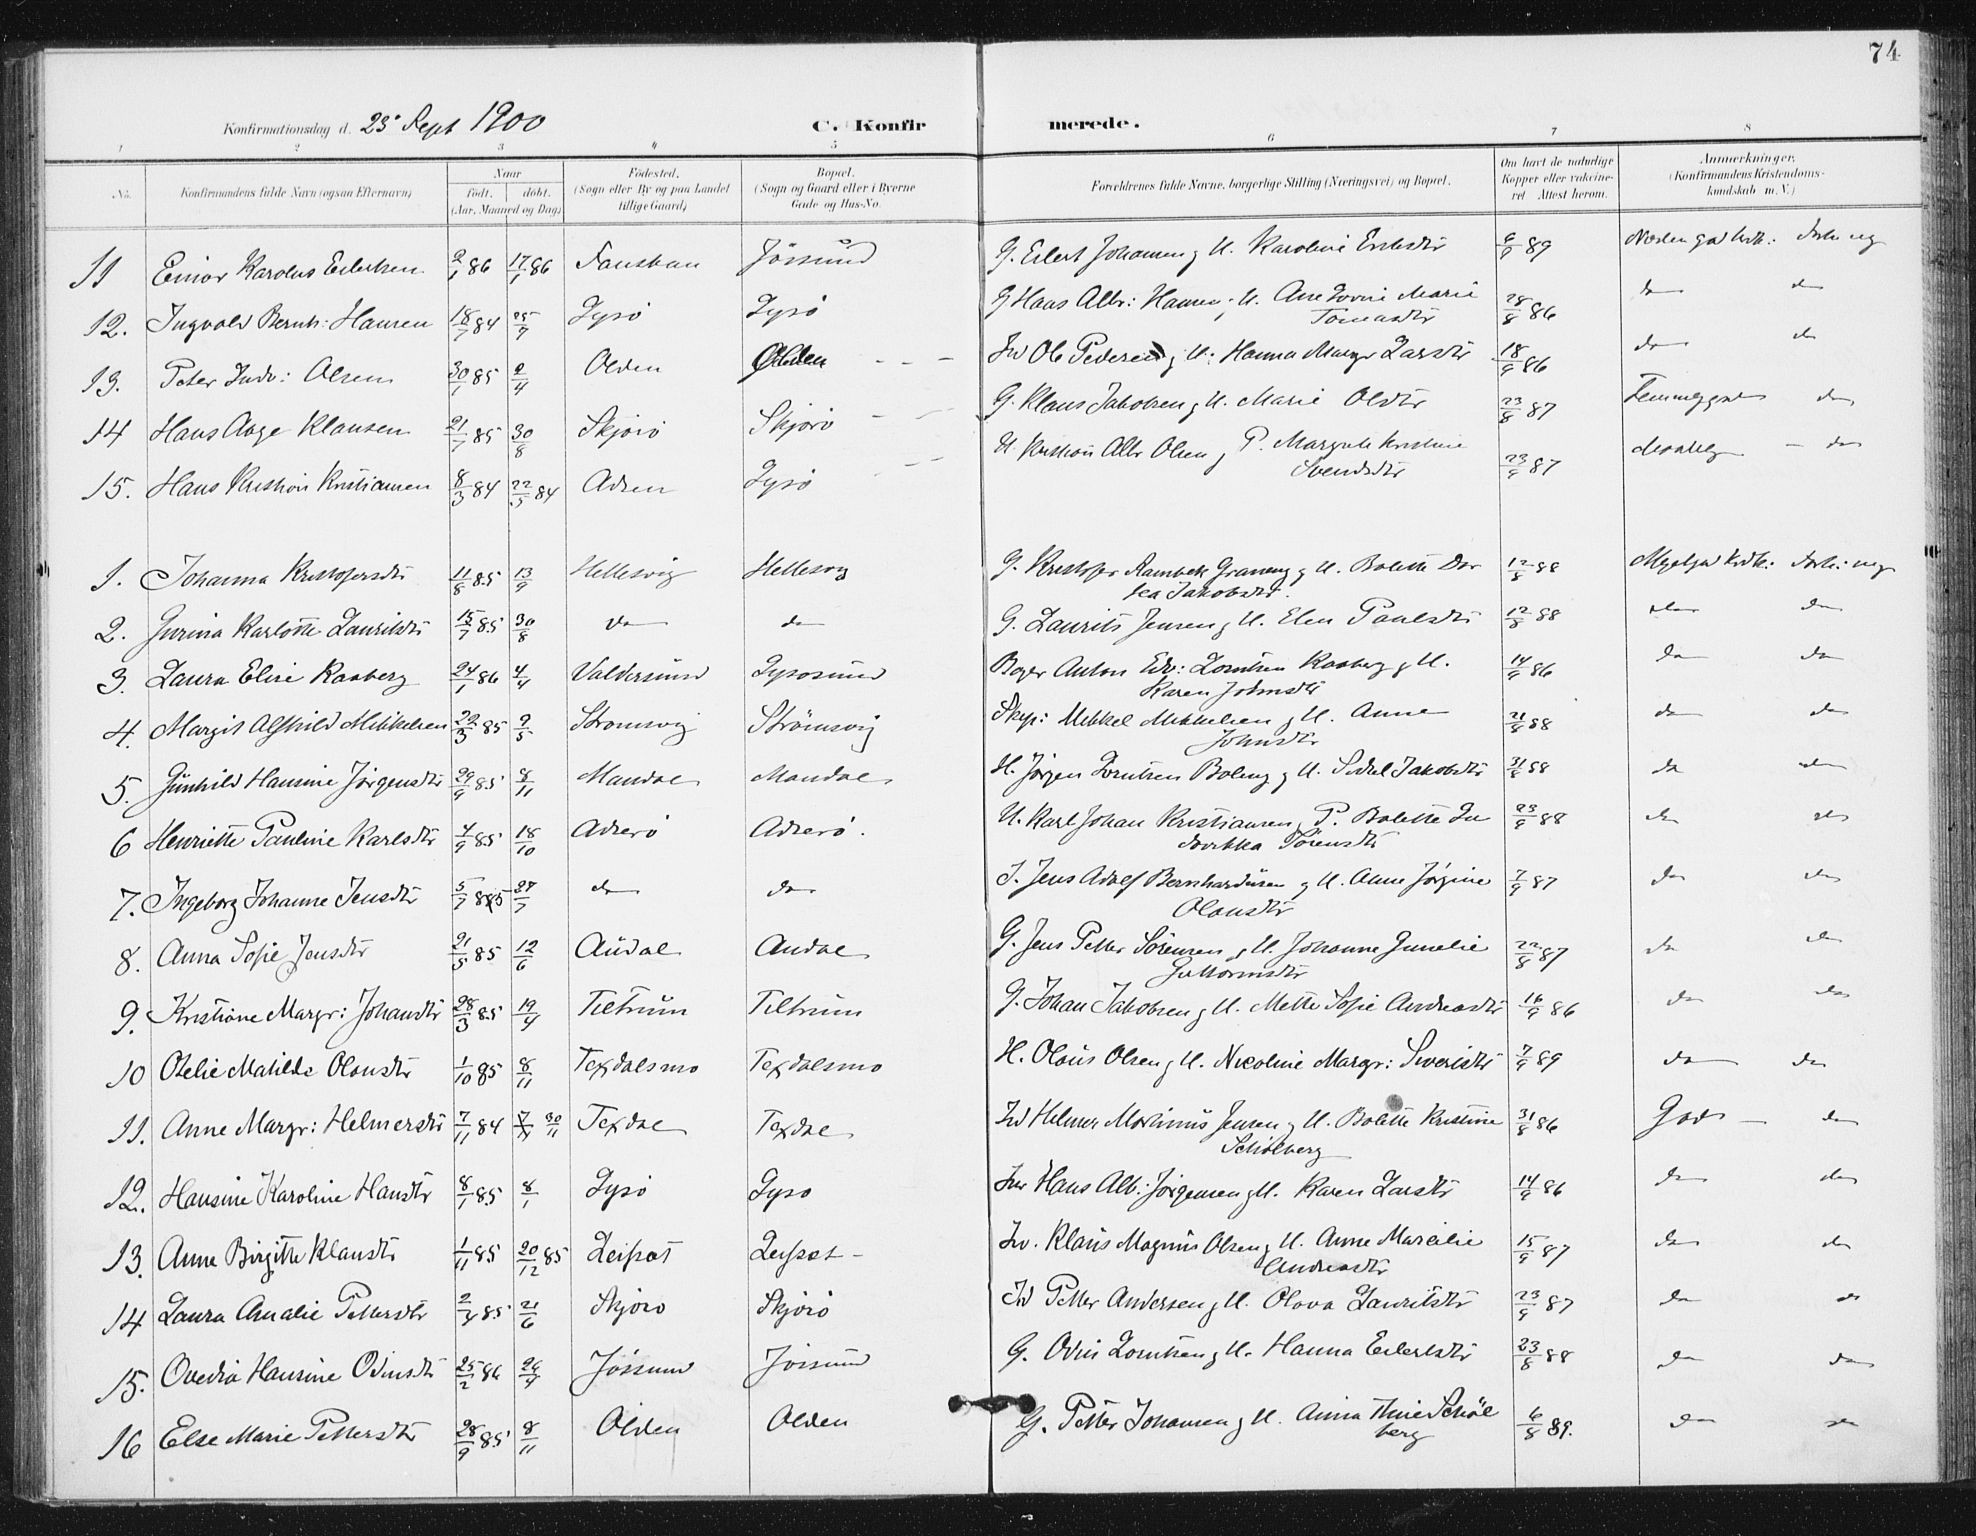 74
Konfirmationsdag d. 23 Sept 1900 C. Konfirmerede.
1 2 3 4 5 6 7 8
No. Konfirmandens fulde Navn (ogsaa Efternavn) Naar født. døbt. (Aar, Maaned og Dag) Fødested. (Sogn eller By og paa Landet tillige Gaard) Bopæl. (Sogn og Gaard eller i Byerne Gade og Hus-No. Forældrenes fulde Navne, borgerlige Stilling (Næringsvei) og Bopæl. Om havt de naturlige Kopper eller vakcineret Attest herom. Anmerkninger. (Konfirmandens Kristendomskundskab m. V.)
11 Einar Karolus Eilertsen 2/1 86 17/1 86 Jössund G. Eilert Johansen g U. Karoline 6/9 89
12. Ingvald Bernh: Hansen 18/7 84 Lysö Lysö G Hans Alb: Hansen g U. Ane Marie
Tomasdtr 28/8 86 do do
13. Peter Ludv: Olsen 30/1 85 Olden Olden Ole Pedersen g U. Hanna Margr Larsdtr 18/9 86 do do
14 Hans Aage Klausen 21/7 85 30/8 Skjörö Skjörö G. Klaus Jakobsen g U. Marie Olsdtr 23/8 87 do
15. Hans Kristian Kristiansen 8/3 84 22/5 84 Lysö U. Kristian Alb Olsen g P. Margrete Kristine
Svendsdtr 23/9 87 do
1. Johanna Kristofersdtr 11/8 85 13/9 Hellesvig Hellesvig G. Kristofer g U. Bolette Dor
tea Jakobsdtr. 12/8 88
2. Gurina Karlotte Lauritsdtr 15/7 85 30/8 do do G. Laurits Jensen g U. Elen Paulsdtr 12/8 88 do do
3. Laura Elise Raaberg 24/1 86 4/4 Valdersund Lysosund Anton Edv: Lorntsen Raaberg g U.
Karen Johnsdtr 14/9 86 do do
4. Margit Alfhild Mikkelsen 22/3 85 9/5 Strömsvig Strömsvig Skip: Mikkel Mikkelsen g U. Anne
Johnsdtr 21/8 88 do do
5. Gunhild Hansine Jörgensdtr 29/9 85 8/11 Mandal Mandal H. Jörgen Lorntsen g U. Sidsel Jakobsdtr 31/8 88 do do
6 Henriette Pauline Karlsdtr 4/9 85 18/10 U. Karl Johan Kristiansen g P. Bolette
Sörensdtr 23/9 88 do do
7. Ingeborg Johanne Jensdtr 5/7 85 27/7 do do Jens Adolf Bernhardsen g U. Anne Jörgine
Olausdtr 7/9 87 do do
8. Anna Sofie Jensdtr 21/5 85 12/6 Audal Audal G. Jens Petter Sörensen g U. Johanne
Guttormsdtr 22/8 87 do do
9. Kristiane Margr: Johansdtr 28/3 85 19/4 Tiltrum Tiltrum G. Johan Jakobsen g U. Mette Sofie Andreasdtr 16/9 86 do do
10 Otelie Matilde Olausdtr 1/10 85 8/11 Texdalsmo Texdalsmo H. Olaus Olsen g U. Nicoline Margr: Siversdtr 7/9 89 do do
11. Anne Margr: Helmersdtr 7/11 84 30/11 Texdal Texdal Helmer Jensen g U. Bolette Kristine
Schiölberg 31/8 86 God do
12. Hansine Karoline Hansdtr 8/1 85 8/1 Lysö Lysö Hans Alb: Jörgensen g U. Karen Larsdtr 14/9 86 do do
13. Anne Birgitte Klausdtr 1/11 85 20/12 85 Klaus Magnus Olsen g U. Anne
Andreasdtr 15/9 87 do do
14 Laura Amalie Pettersdtr 85 21/6 Skjörö Skjörö Petter Andersen g U. Olava Lauritsdtr 23/9 87 do do
15. Ovedia Hansine Odinsdtr 25/2 86 Jössund Jössund G. Odin Lorntsen g U. Hanna Eilertsdtr 23/8 88 do do
16 Else Marie Pettersdtr 28/9 85 8/11 Olden Olden G. Petter Johansen g U. Anna Schöl
berg 6/8 89. do do